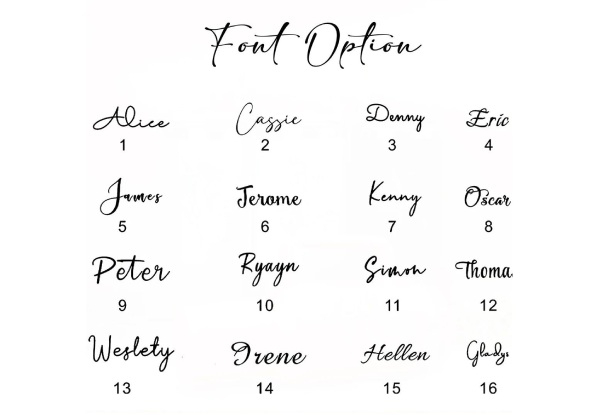 Font Option
Alice Cassie Denny Eric
1 2 3 4
James Jerome Kenny Oscar
5 6 7 8
Peter Ryayn Simon Thoma
9 10 11 12
Weslety Irene Hellen Gladys
13 14 15 16